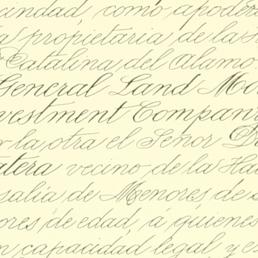 cindad, como apodera
propietaria de las
Catalina del Alamo
General Land Mo
vestment Compan
la otra el Señor D
atera vecino de la Ha
salia de Menores de
ores de edad, á quienes
capacidad legal, y es